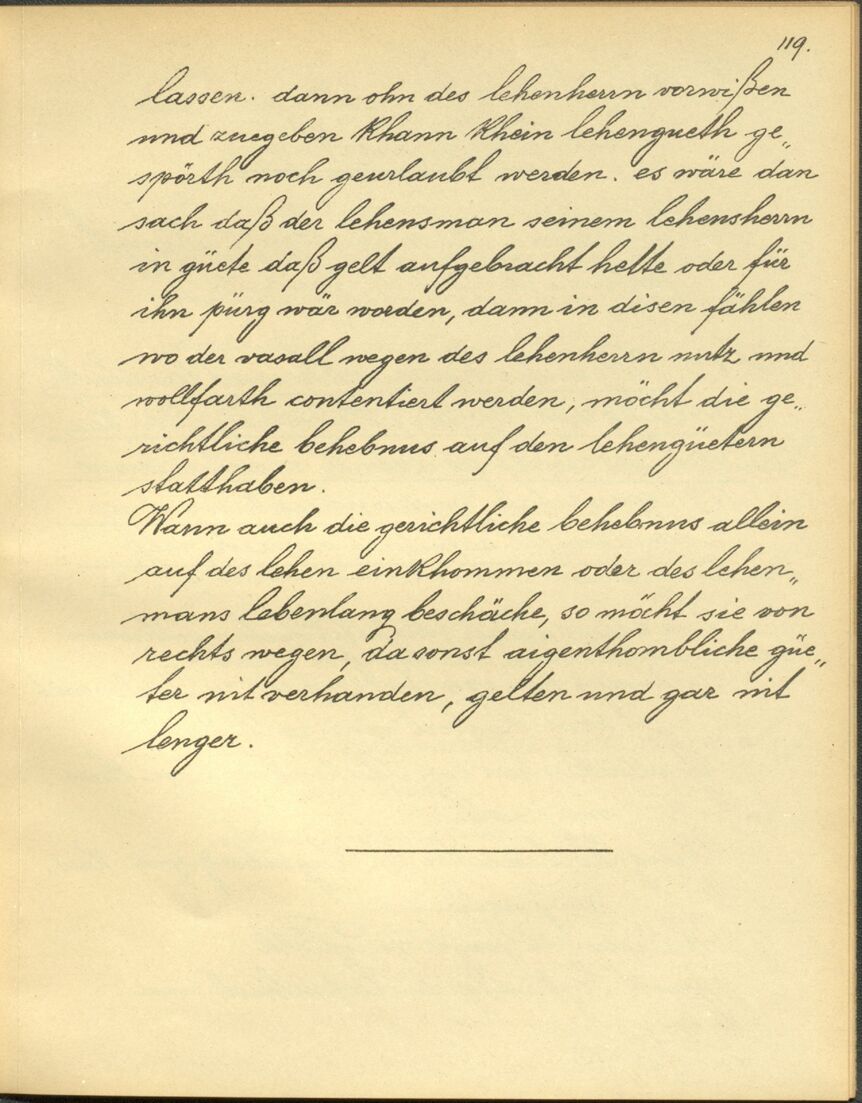 119.
lassen. dann ohn des lehenherrn vorwißen
und zuegeben khann khein lehengueth ge„
spörth noch geurlaubt werden. es wäre dan
sach daß der lehensman seinem lehensherrn
in güete daß gelt aufgebracht hette oder für
ihn pürg wär worden, dann in disen fählen
wo der vasall wegen des lehenherrn nutz und
wollfarth contentiert werden, möcht die ge„
richtliche behebnus auf den lehengüetern
statthaben.
Wann auch die gerichtliche behebnus allein
auf des lehen einkhommen oder des lehen„
mans lebenlang beschäche, so möcht sie von
rechts wegen, da sonst aigenthombliche güe„
ter nit verhanden, gelten und gar nit
lenger.